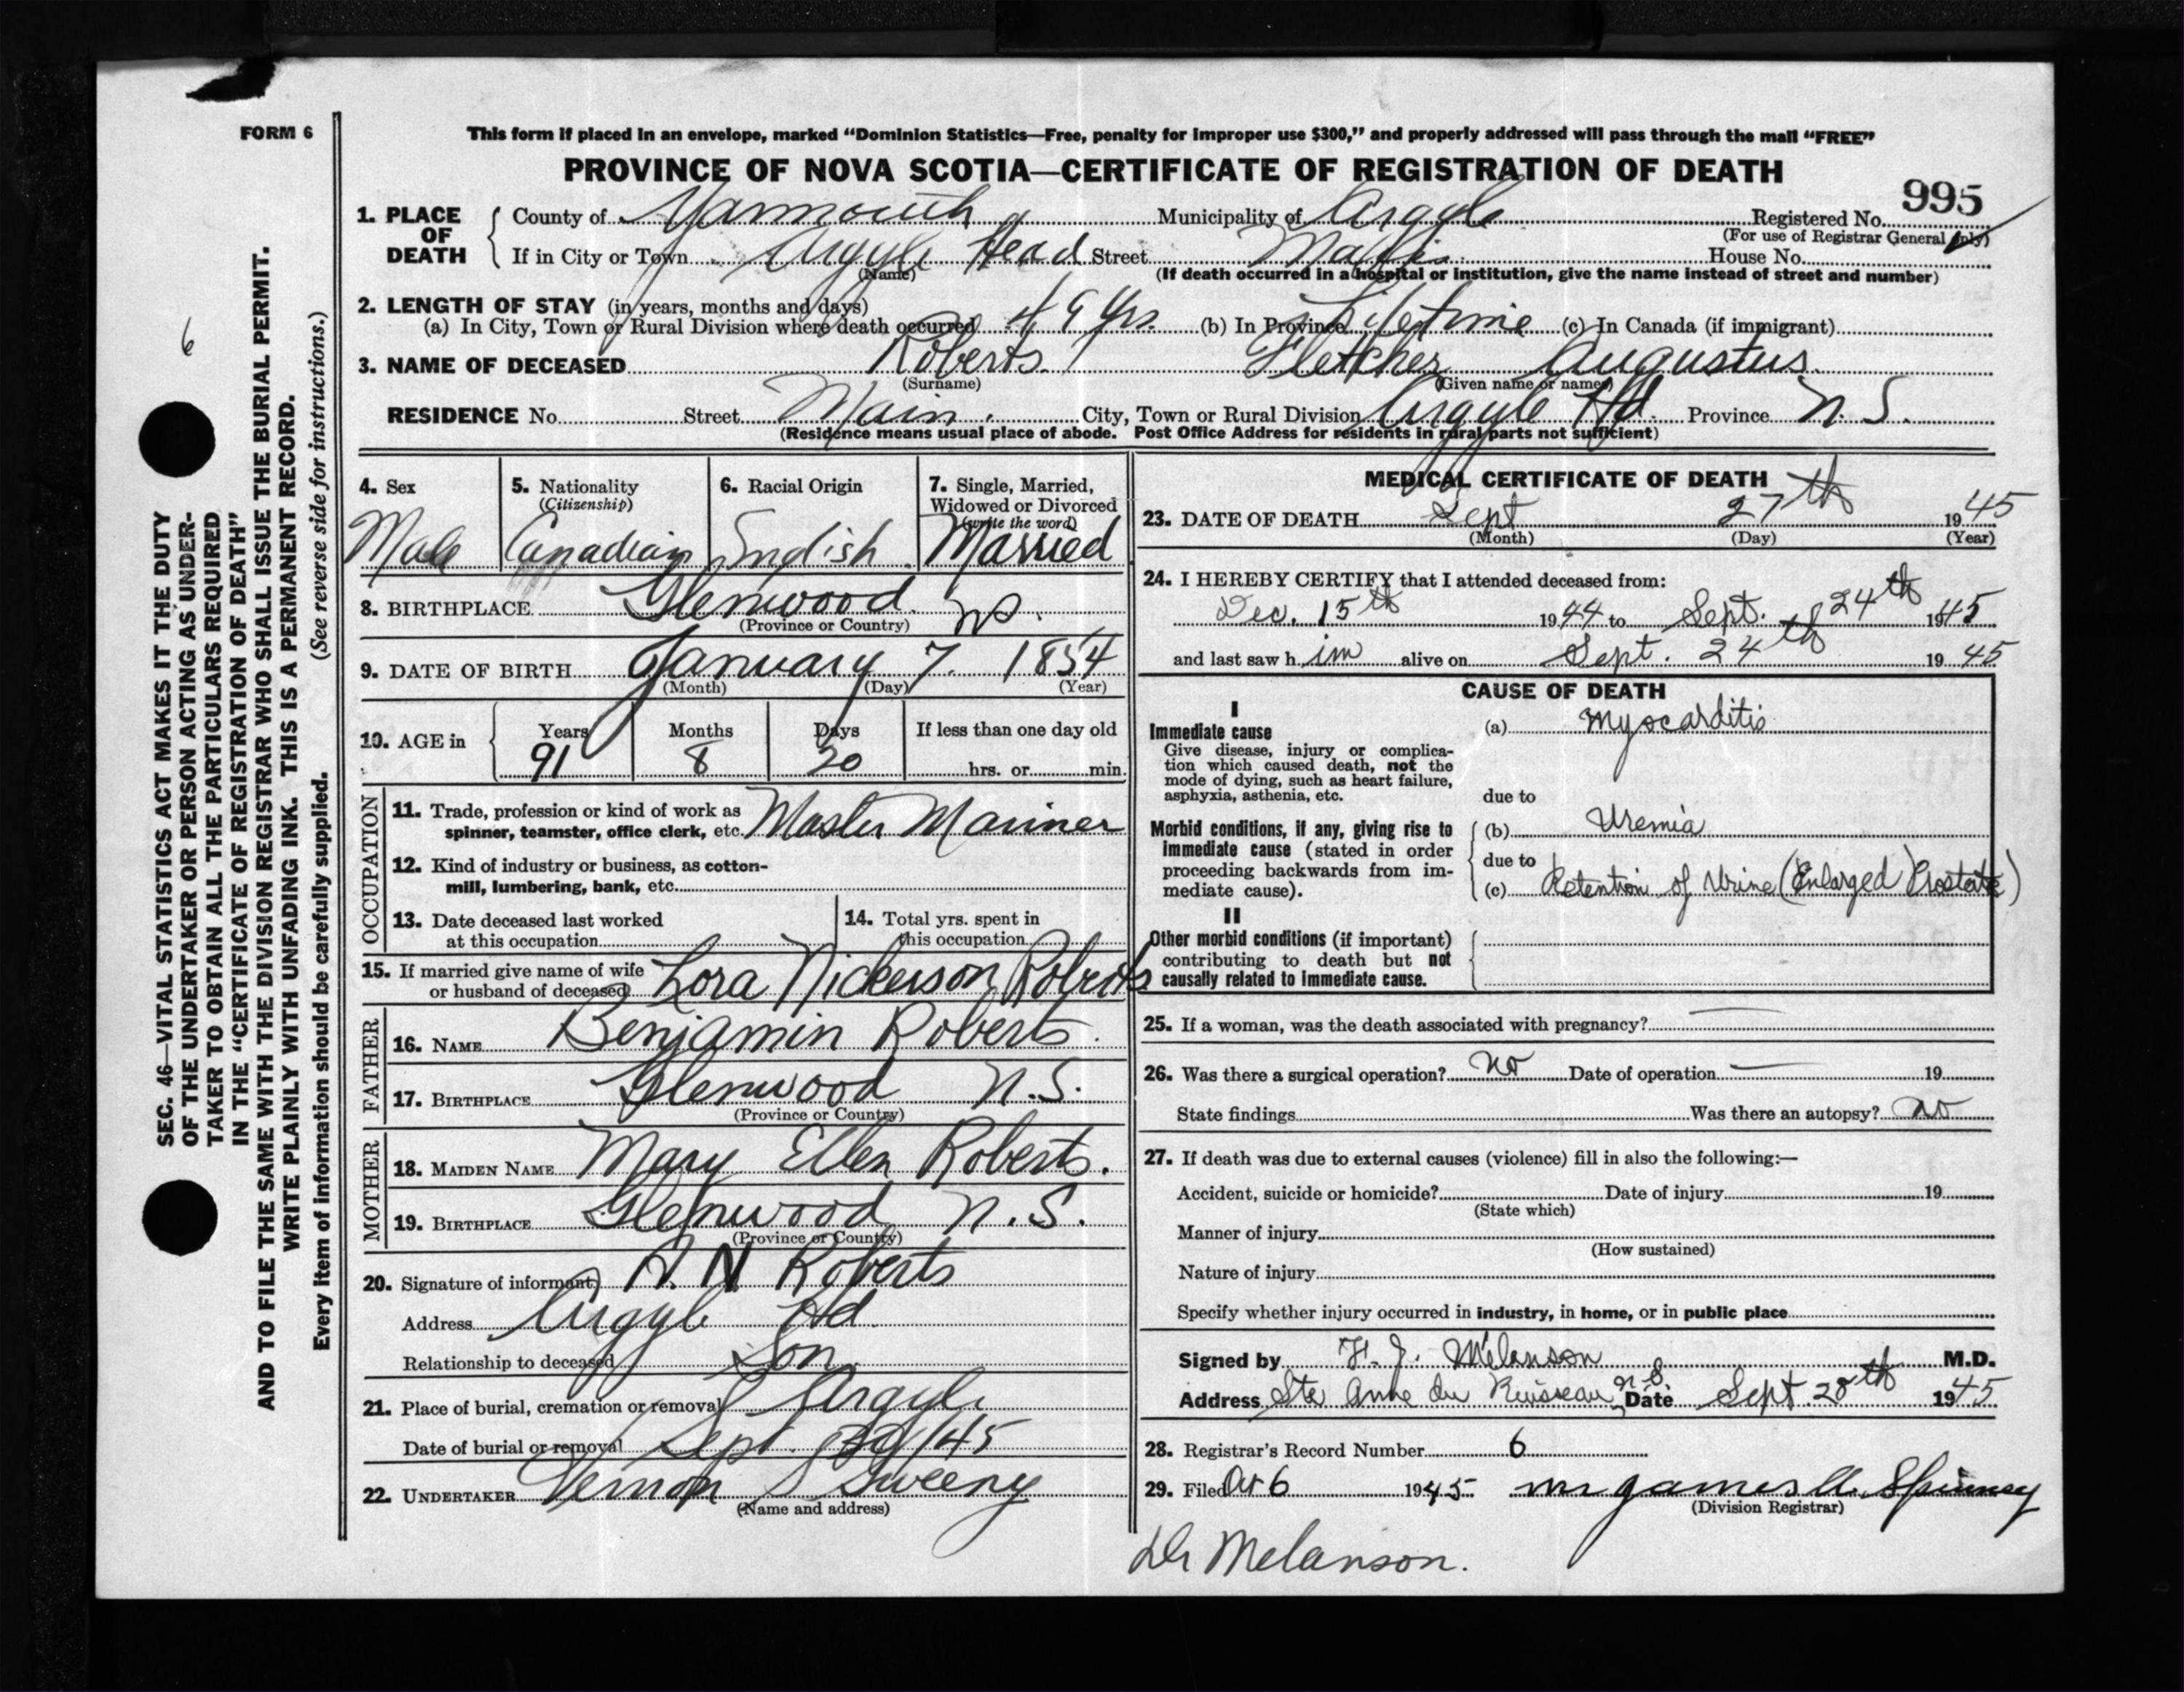 FORM 6
This form if placed in an envelope, marked “Dominion Statistics—Free, penalty for improper use $300,” and properly addressed will pass through the mail “FREE”
PROVINCE OF NOVA SCOTIA—CERTIFICATE OF REGISTRATION OF DEATH
995
1. PLACE OF DEATH County of Yarmouth Municipality of Argyle Registered No.
(For use of Registrar General only)
If in City or Town Argyle Head Street Main House No.
(Name) (If death occurred in a hospital or institution, give the name instead of street and number)
2. LENGTH OF STAY (in years, months and days)
(a) In City, Town or Rural Division where death occurred 49 Yrs. (b) In Province Lifetime (c) In Canada (if immigrant)
3. NAME OF DECEASED Roberts. Fletcher Augustus.
(Surname) (Given name or names)
RESIDENCE No. Street Main. City, Town or Rural Division Argyle Hd. Province N.S.
(Residence means usual place of abode. Post Office Address for residents in rural parts not sufficient)
4. Sex
Male
5. Nationality
(Citizenship)
Canadian
6. Racial Origin
English.
7. Single, Married,
Widowed or Divorced
(write the word)
Married
8. BIRTHPLACE Glenwood. NS.
(Province or Country)
9. DATE OF BIRTH January 7. 1854
(Month) (Day) (Year)
10. AGE in Years Months Days If less than one day old
91 8 20 hrs. or min.
OCCUPATION
11. Trade, profession or kind of work as
spinner, teamster, office clerk, etc. Master Mariner
12. Kind of industry or business, as cotton-
mill, lumbering, bank, etc.
13. Date deceased last worked
at this occupation
14. Total yrs. spent in
this occupation
15. If married give name of wife
or husband of deceased Lora Nickerson Roberts
FATHER
16. NAME Benjamin Roberts.
17. BIRTHPLACE Glenwood N.S.
(Province or Country)
MOTHER
18. MAIDEN NAME Mary Ellen Roberts.
19. BIRTHPLACE Glenwood N.S.
(Province or Country)
20. Signature of informant N Roberts
Address Argyle Hd.
Relationship to deceased Son.
21. Place of burial, cremation or removal Argyle
Date of burial or removal Sept. 30/45
22. UNDERTAKER Vernon S Sweeny
(Name and address)
MEDICAL CERTIFICATE OF DEATH
23. DATE OF DEATH Sept 27th 1945
(Month) (Day) (Year)
24. I HEREBY CERTIFY that I attended deceased from:
Dec. 15th 1944 to Sept. 24th 1945
and last saw him alive on Sept. 24th 1945
CAUSE OF DEATH
I
Immediate cause
Give disease, injury or complica-
tion which caused death, not the
mode of dying, such as heart failure,
asphyxia, asthenia, etc.
(a) Myocarditis
due to
Morbid conditions, if any, giving rise to
immediate cause (stated in order
proceeding backwards from im-
mediate cause).
(b) Uremia
due to
(c) Retention of Urine (Enlarged Prostate)
II
Other morbid conditions (if important)
contributing to death but not
causally related to immediate cause.
25. If a woman, was the death associated with pregnancy? —
26. Was there a surgical operation? no Date of operation — 19
State findings Was there an autopsy? no
27. If death was due to external causes (violence) fill in also the following:—
Accident, suicide or homicide? Date of injury 19
(State which)
Manner of injury
(How sustained)
Nature of injury
Specify whether injury occurred in industry, in home, or in public place
Signed by F. J. Melanson M.D.
Address Ste Anne du Ruisseau N.S. Date Sept 28th 1945
28. Registrar's Record Number 6
29. Filed Oct 6 1945 Mr James A. Spinney
(Division Registrar)
Dr Melanson.
6
SEC. 46—VITAL STATISTICS ACT MAKES IT THE DUTY
OF THE UNDERTAKER OR PERSON ACTING AS UNDER-
TAKER TO OBTAIN ALL THE PARTICULARS REQUIRED
IN THE “CERTIFICATE OF REGISTRATION OF DEATH”
AND TO FILE THE SAME WITH THE DIVISION REGISTRAR WHO SHALL ISSUE THE BURIAL PERMIT.
WRITE PLAINLY WITH UNFADING INK. THIS IS A PERMANENT RECORD.
Every item of information should be carefully supplied. (See reverse side for instructions.)